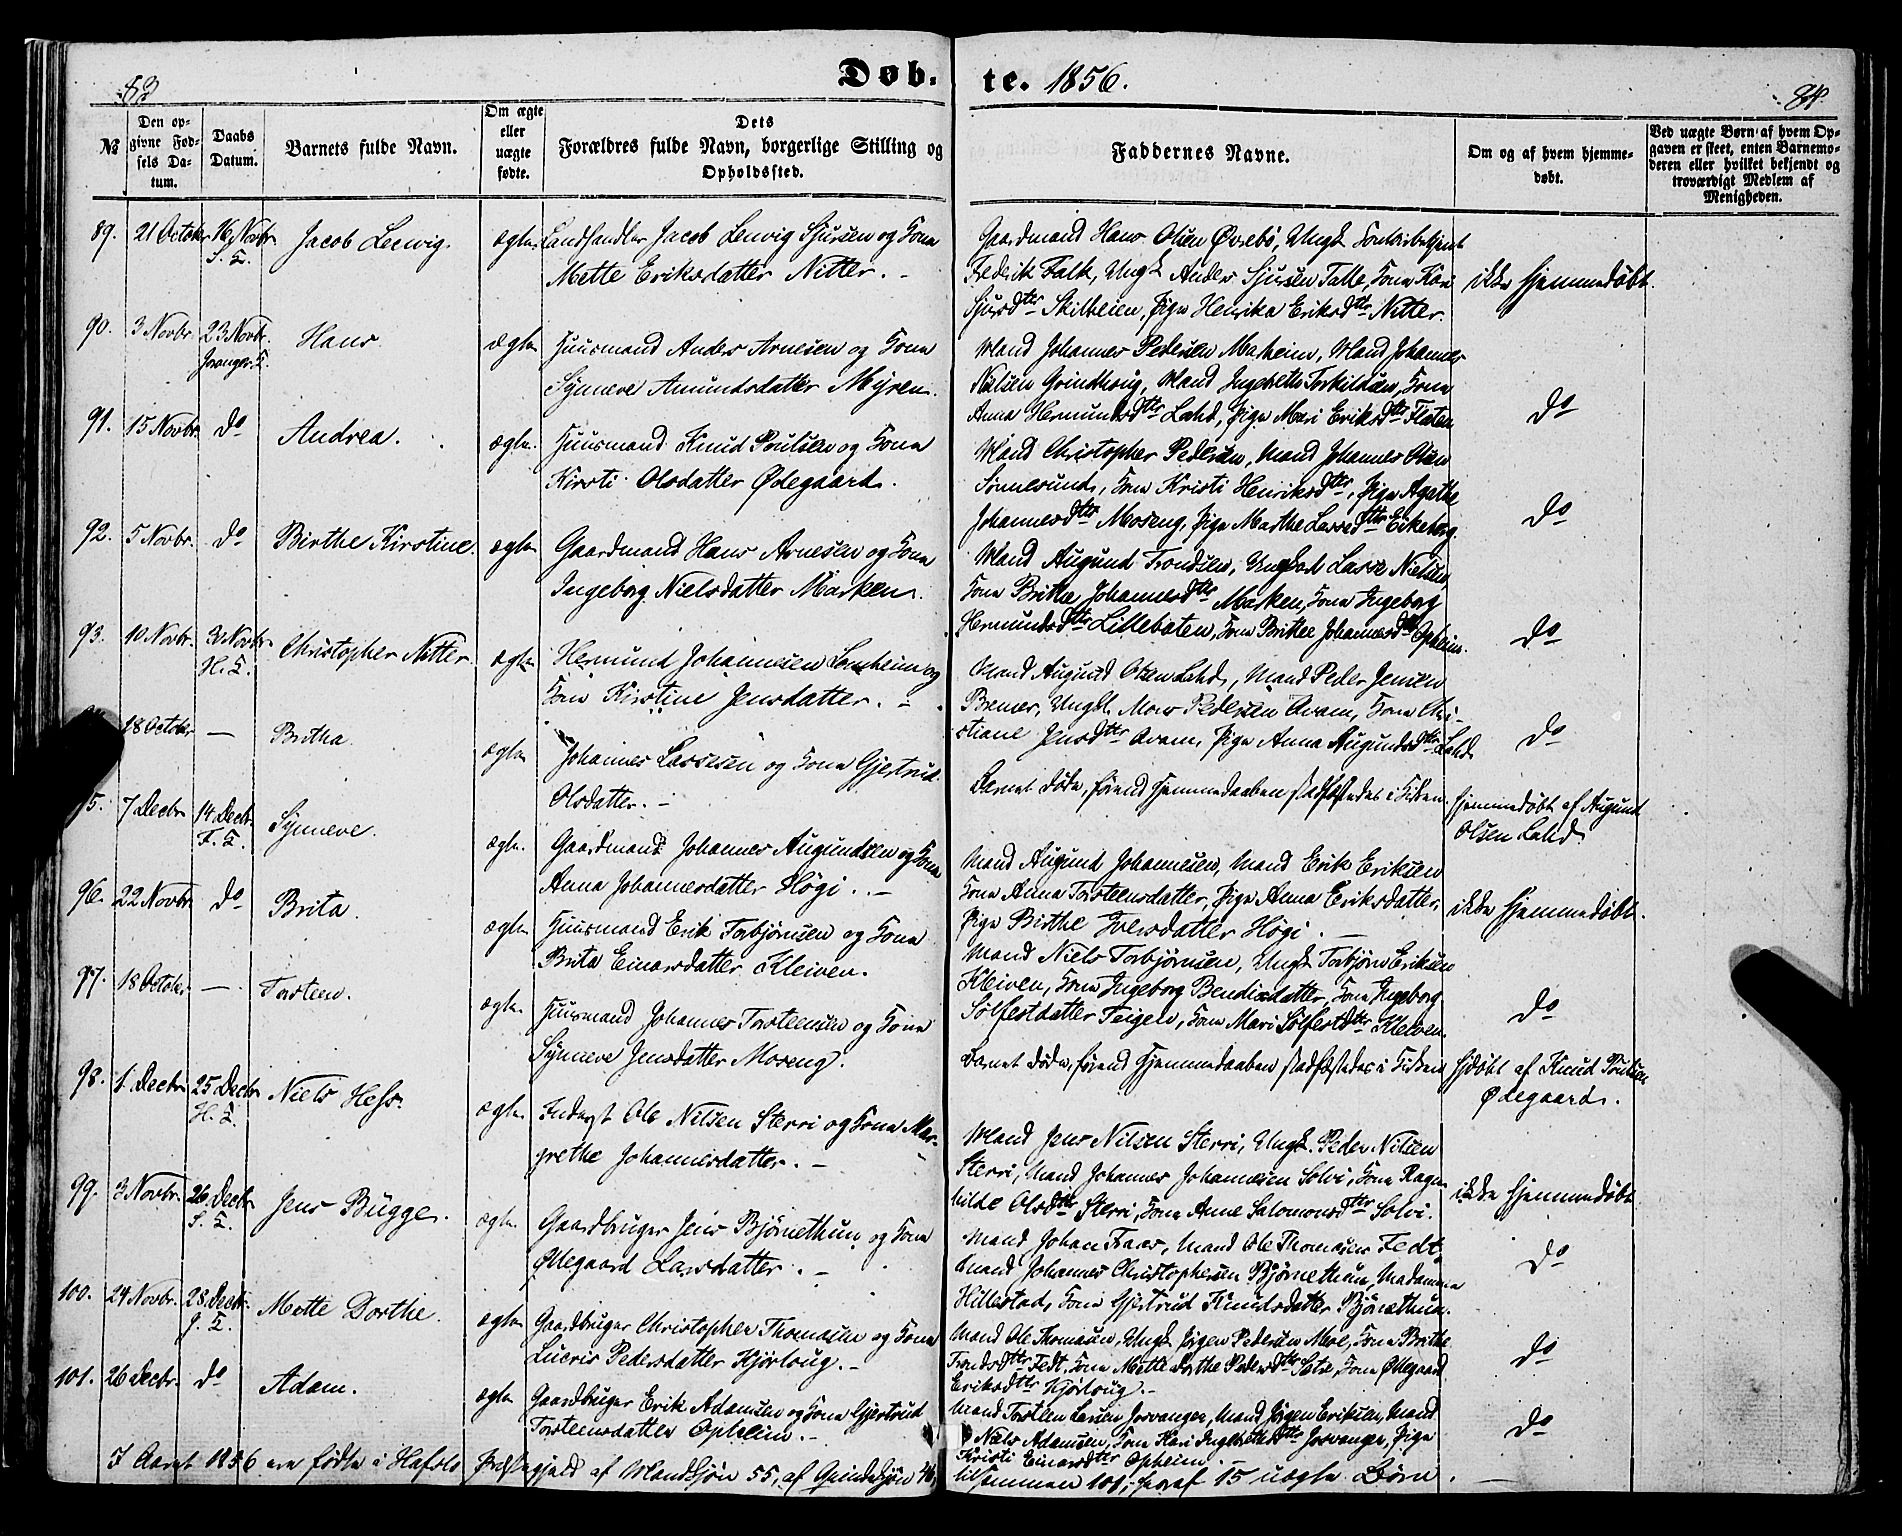 83
Døb-
te. 1856.
84.
№
Den op-
givne Fød-
sels Da-
tum.
Daabs
Datum.
Barnets fulde Navn.
Om ægte
eller
uægte
fødte.
Dets
Forældres fulde Navn, borgerlige Stilling og
Opholdssted.
Faddernes Navne.
Om og af hvem hjemme-
døbt.
Ved uægte Børn af hvem Op-
gaven er skeet, enten Barnemo-
deren eller hvilket bekjendt og
troværdigt Medlem af
Menigheden.
89. 21 October 16 Novbr. Jacob Leewig. ægte Landhandler Jacob Lewvig Sjursen og Kone
Mette Eriksdatter Nitter. -
Gaardmand Hans Olsen Øvrebø, Ungk.
Frederik Falk, Ungk Anders Sjursen Talle, Kone Kari
Sjursdtr Skilheien, Pige Henrika Eriksdtr Nitter.
ikke hjemmedøbt.
90. 3 Novbr. 23 Novbr. Hans ægte Huusmand Anders Arnesen og Kone
Synneve Amundsdatter Myren.
Mand Johannes Pedersen Maheim, Mand Johannes
Nielsen Grindhoug, Mand Ingebreth Torkildsen, Kone
Anna Hermundsdtr Lahd, Pige Mari Eriksdtr Flaten
do
91. 15 Novbr. do Andrea. ægte. Huusmand Knud Poulsen og Kone
Kirsti Olsdatter Ødegaard.
Mand Christopher Pedersen, Mand Johannes Olsen
Sønnesund, Kone Kristi Henriksdtr, Pige Agathe
Johannesdtr Moseng, Pige Marthe Lassedtr Eikeberg.
do
92. 5 Novbr. do Birthe Kirstine. ægte Gaardmand Hans Arnesen og Kone
Ingeborg Nielsdatter Marken.
Mand Augund Trondsen, Lasse Nielsen,
Kone Brithe Johannesdtr Marken, Kone Ingeborg
Hermundsdtr Lillebøten, Kone Brithe Johannesdtr Opheim.
do
93. 10 Novbr. 30 Novbr H. K. Christopher Nitter ægte Hermund Johannesen Lomheim og
Kone Kirstine Jensdatter. -
Mand Augund Olsen Lahd, Mand Peder Jensen
Bremer, Ungk. Mons Pedersen Kvam, Kone Chri-
stiane Jensdtr Kvam, Pige Anna Augundsdtr Lahd
do
18 October — Britha ægte Johannes Lassesen og Kone Gjertrud
Olsdatter. -
Barnet døde, førend Hjemmedaaben stadfæstedes i Kirken.
hjemmedøbt af Augund
Olsen Lahd
95. 7 Decbr 14 Decbr Synneve. ægte. Gaardmand Johannes Augundsen og Kone
Anna Johannesdatter Høgi. -
Mand Augund Johannesen, Mand Erik Eriksen
Kone Anna Torsteensdatter, Pige Anna Eriksdatter,
Pige Birthe Iversdatter Høgi. —
ikke hjemmedøbt.
96. 22 Novbr. do Brita. ægte Huusmand Erik Torbjørnsen og Kone
Brita Einarsdatter Kleiven.
Mand Niels Torbjørnsen, Ungk Torbjørn Eriksen
Kleiven, Kone Ingeborg Bendixdatter, Kone Ingeborg
Sølfestdatter Feigen, Kone Mari Sølfestdtr Kleiven.
do
97. 18 October — Torsteen. ægte. Huusmand Johannes Torsteensen og Kone
Synneve Jensdatter Moseng.
Barnet døde, førend Hjemmedaaben stadfæstedes i Kirken
hjdøbt af Knud Poulsen
Ødegaard.
98. 1. Decbr. 25 Decbr H. K. Niels Hess. ægte. Inderst Ole Nilsen Sterri og Kone Mar-
grethe Johannesdatter. -
Mand Jens Nilsen Sterri, Ungk. Peder Nilsen
Sterri, Mand Johannes Johannesen Solvi, Kone Ragn-
hilde Olsdtr Sterri, Kone Anne Salomonsdtr Solvi.
ikke hjemmedøbt
99. 3 Novbr. 26 Decbr Jens Bugge. ægte. Gaardbruger Jens Bjørnethun og Kone
Ødegaard Larsdatter. -
Mand Johan Faaer, Mand Ole Thomasen Fedt,
Mand Johannes Christophersen Bjørnethun, Madamme
Hillestad, Kone Gjertrud Knudsdatter Bjørnethun.
do
100. 24 Novbr. 28 Decbr. Mette Dorthe. ægte Gaardbruger Christopher Thomasen og Kone
Lucris Pedersdatter Hjørloug. -
Mand Ole Thomasen, Ungk. Jørgen Pedersen Moe, Kone Brithe
Trondsdtr Fedt, Kone Mette Dorthe Pedersdtr Sæte, Kone Ødegaard
Eriksdtr Hjørloug. -
do
101. 26 Decbr. do Adam. ægte Gaardbruger Erik Adamsen og Kone Gjertrud
Torsteensdatter Opheim. -
Mand Torsteen Larsen Joranger, Mand Jørgen Eriksen, Mand
Niels Adamsen, Kone Kari Ingebrethsdtr Joranger, Pige
Kristi Einarsdtr Opheim. -
do
I Aaret 1856 ere fødte i Hafslo Præstegjeld af Mandkjøn 55, af Qvindekjøn 46,
tilsammen 101, hvoraf 15 uægte Børn.